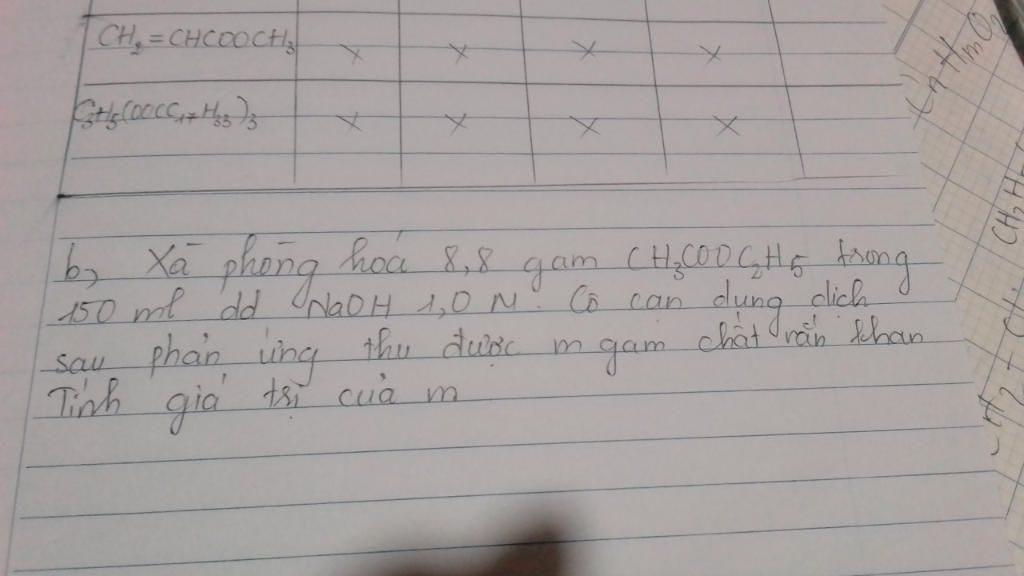 CH₂=CHCOOCH₃ × × × ×
C₃H₅(OOCC₁₇H₃₃)₃ × × × ×
b, Xà phòng hoá 8,8 gam CH₃COOC₂H₅ trong
150 ml dd NaOH 1,0 M. Cô cạn dung dịch
sau phản ứng thu được m gam chất rắn khan
Tính giá trị của m
CnHmO₂